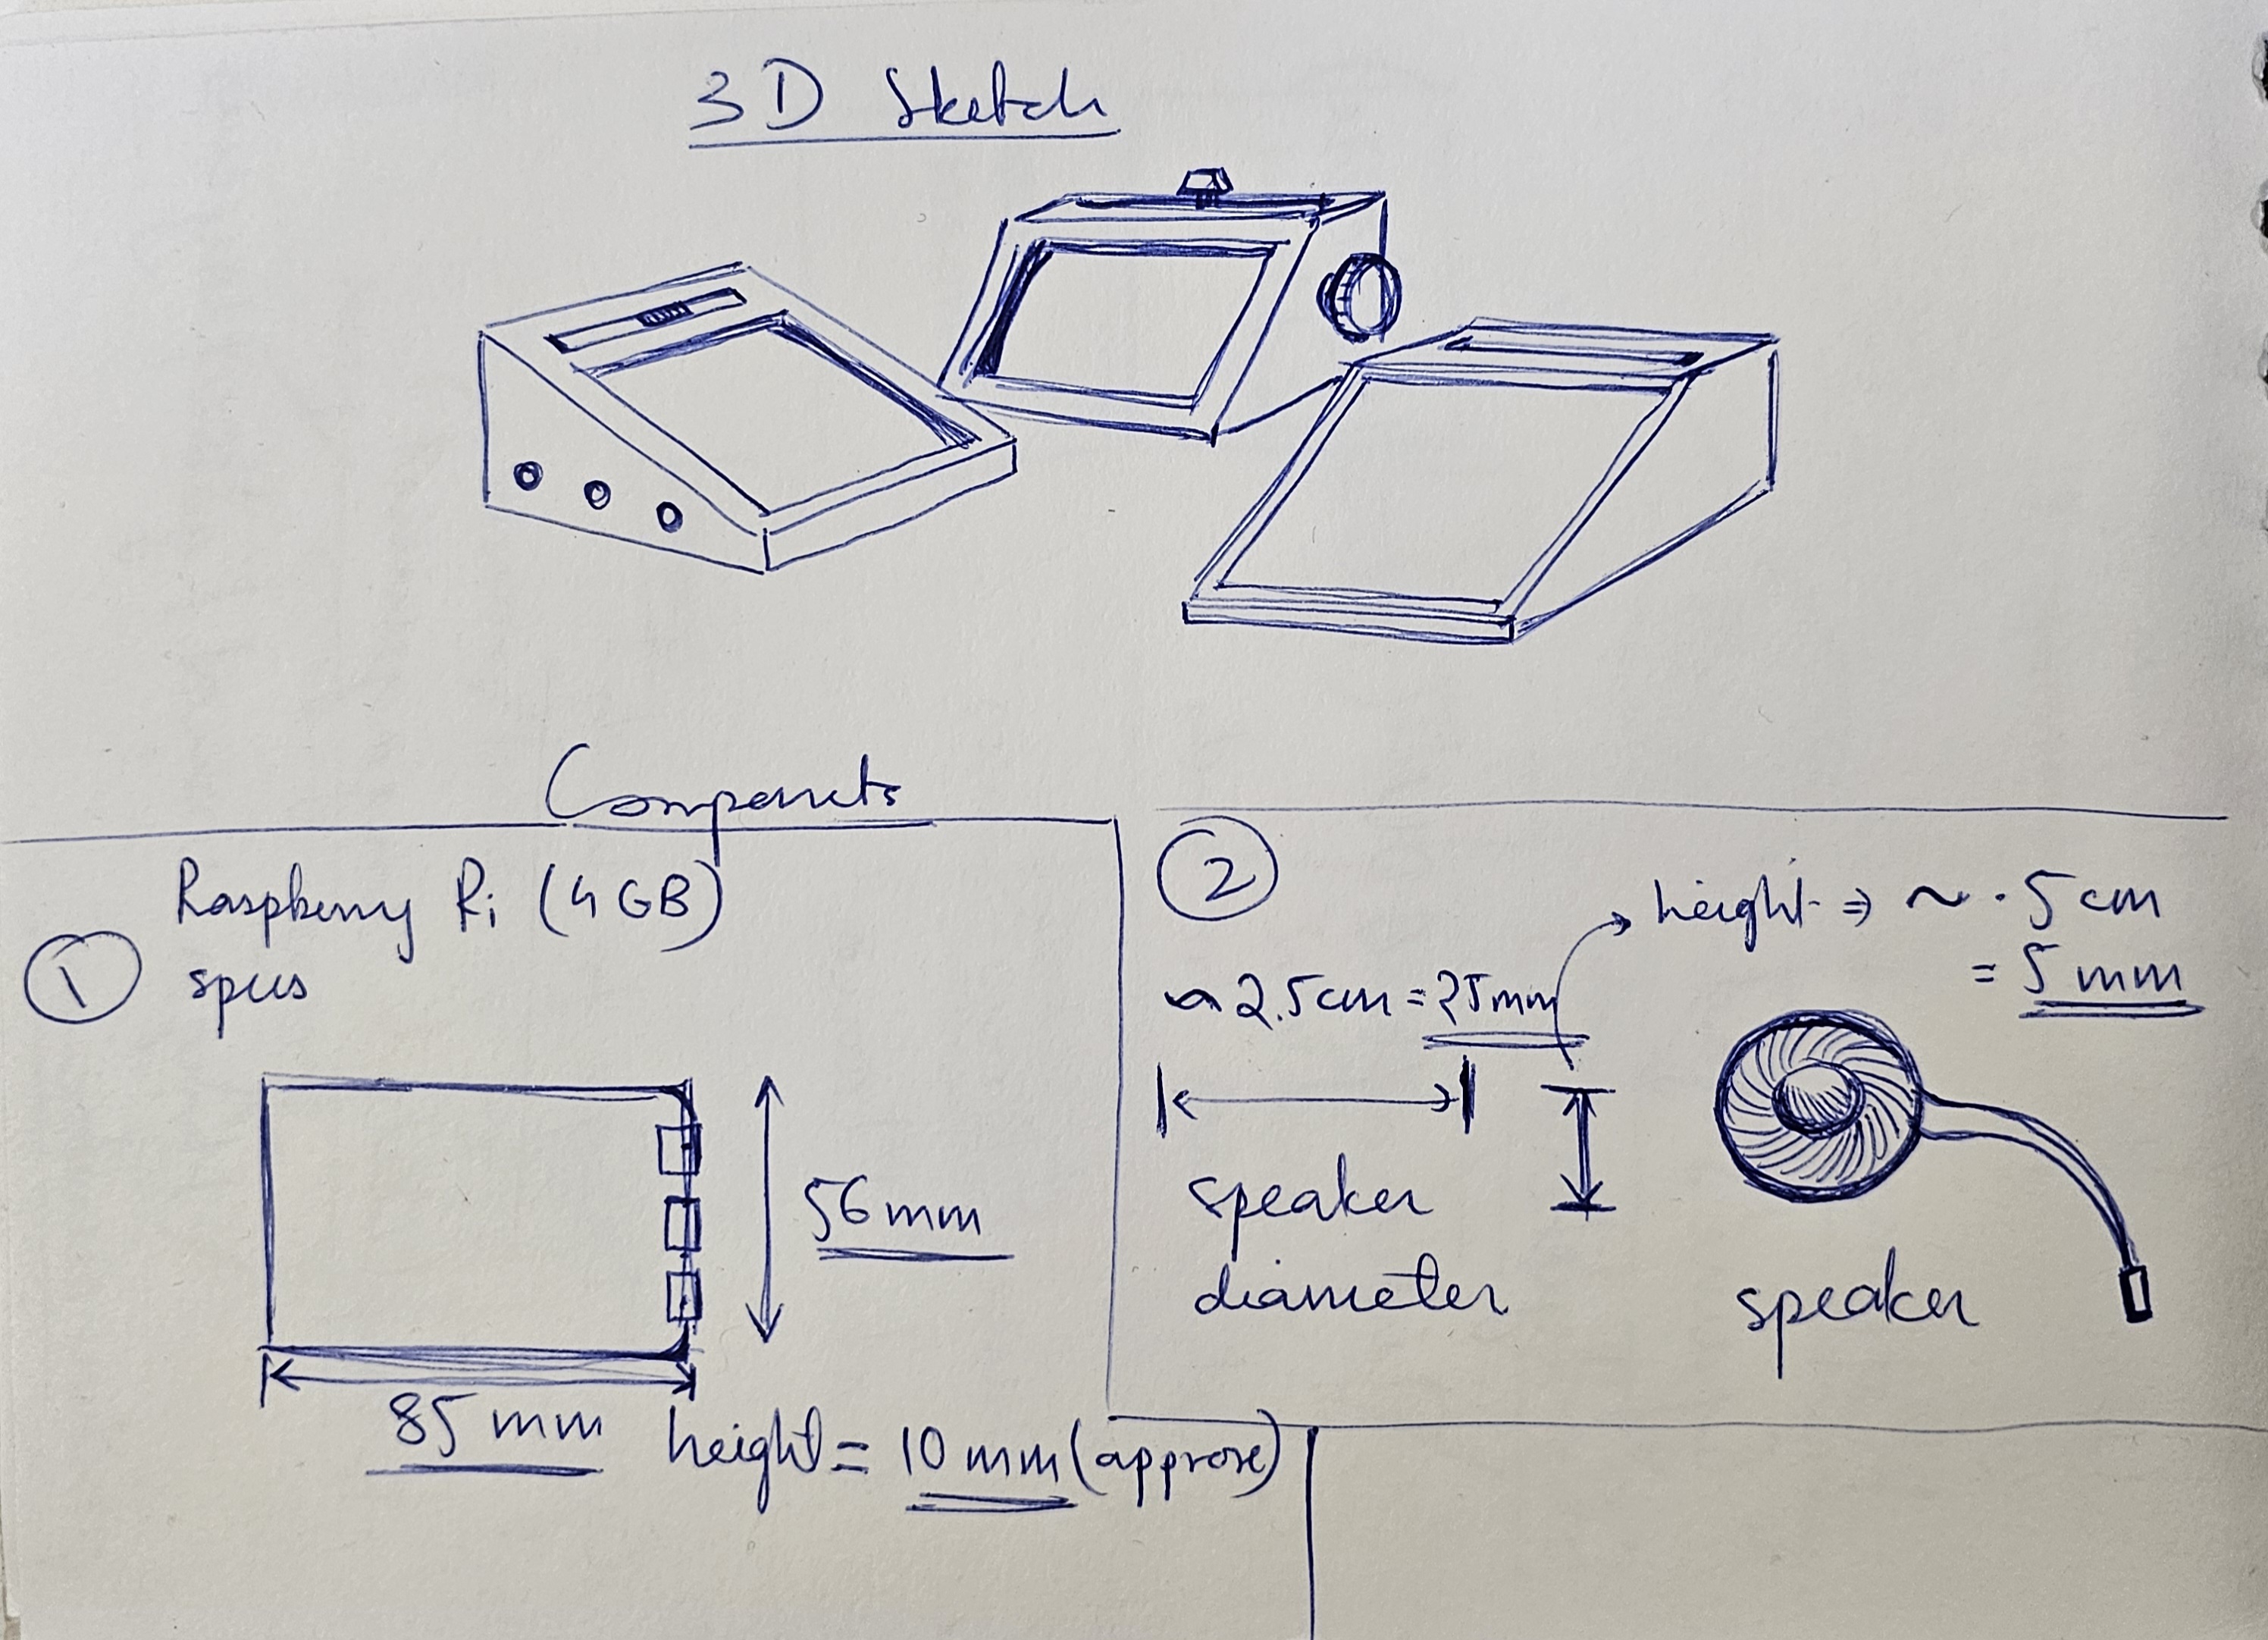 3D Sketch
Components
1
Raspberry Pi (4 GB)
specs
56 mm
85 mm
height = 10 mm (approx)
2
height ⇒ ~ .5 cm
= 5 mm
~ 2.5 cm = 25 mm
speaker
diameter
speaker